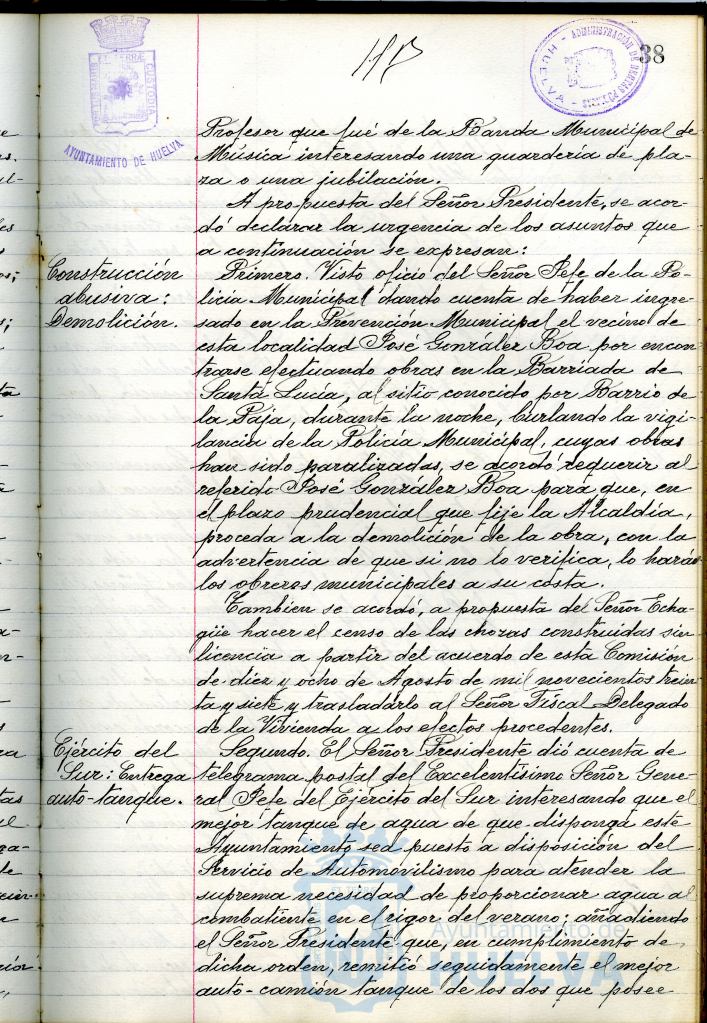 38
AYUNTAMIENTO DE HUELVA
ADMINISTRACIÓN DE RENTAS PÚBLICAS
HUELVA
Profesor que fué de la Banda Municipal de
Música interesando una guardería de pla-
za o una jubilación.
A propuesta del Señor Presidente, se acor-
dó declarar la urgencia de los asuntos que
a continuación se expresan:
Construcción
abusiva:
Demolición.
Primero. Visto oficio del Señor Jefe de la Po-
licia Municipal dando cuenta de haber ingre-
sado en la Prevención Municipal el vecino de
esta localidad José González Boa por encon-
trarse efectuando obras en la Barriada de
Santa Lucía, al sitio conocido por Barrio de
la Paja, durante la noche, burlando la vigi-
lancia de la Policia Municipal, cuyas obras
han sido paralizadas, se acordó requerir al
referido José González Boa para que, en
el plazo prudencial que fije la Alcaldia,
proceda a la demolición de la obra, con la
advertencia de que si no lo verifica, lo harán
los obreros municipales a su costa.
Tambien se acordó, a propuesta del Señor Echa-
güe hacer el censo de las chozas construidas sin
licencia a partir del acuerdo de esta Comisión
de diez y ocho de Agosto de mil novecientos trein-
ta y siete y trasladarlo al Señor Fiscal Delegado
de la Vivienda a los efectos procedentes.
Ejército del
Sur: Entrega
auto-tanque.
Segundo. El Señor Presidente dió cuenta de
telegrama postal del Excelentísimo Señor Gene-
ral Jefe del Ejército del Sur interesando que el
mejor tanque de agua de que disponga este
Ayuntamiento sea puesto a disposición del
Servicio de Automovilismo para atender la
suprema necesidad de proporcionar agua al
combatiente en el rigor del verano; añadiendo
el Señor Presidente que, en cumplimiento de
dicha orden, remitió seguidamente el mejor
auto-camión tanque de los dos que posee
Ayuntamiento de
HUELVA